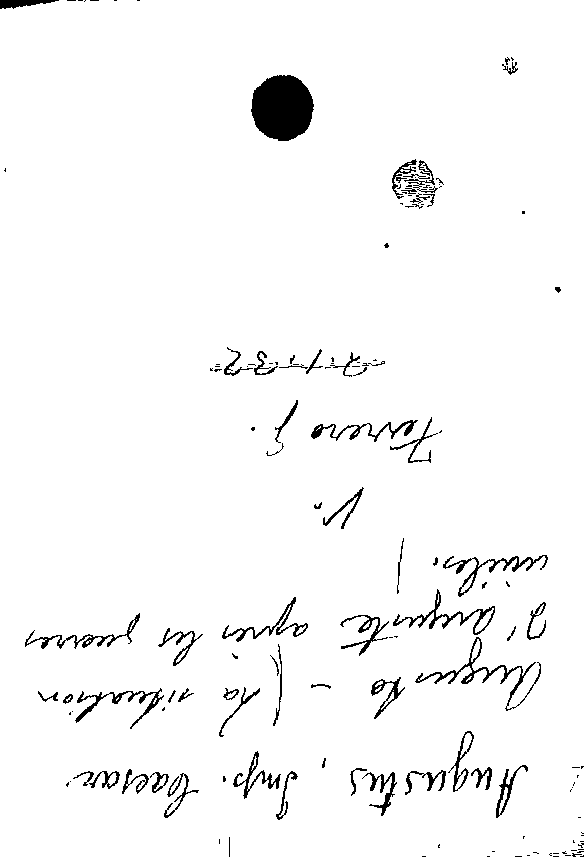 Augustus, Imp. Caesar
Augusto - (La situation
d'Auguste après les guerres
civiles.)
V.
Ferrero G.
2-1-32